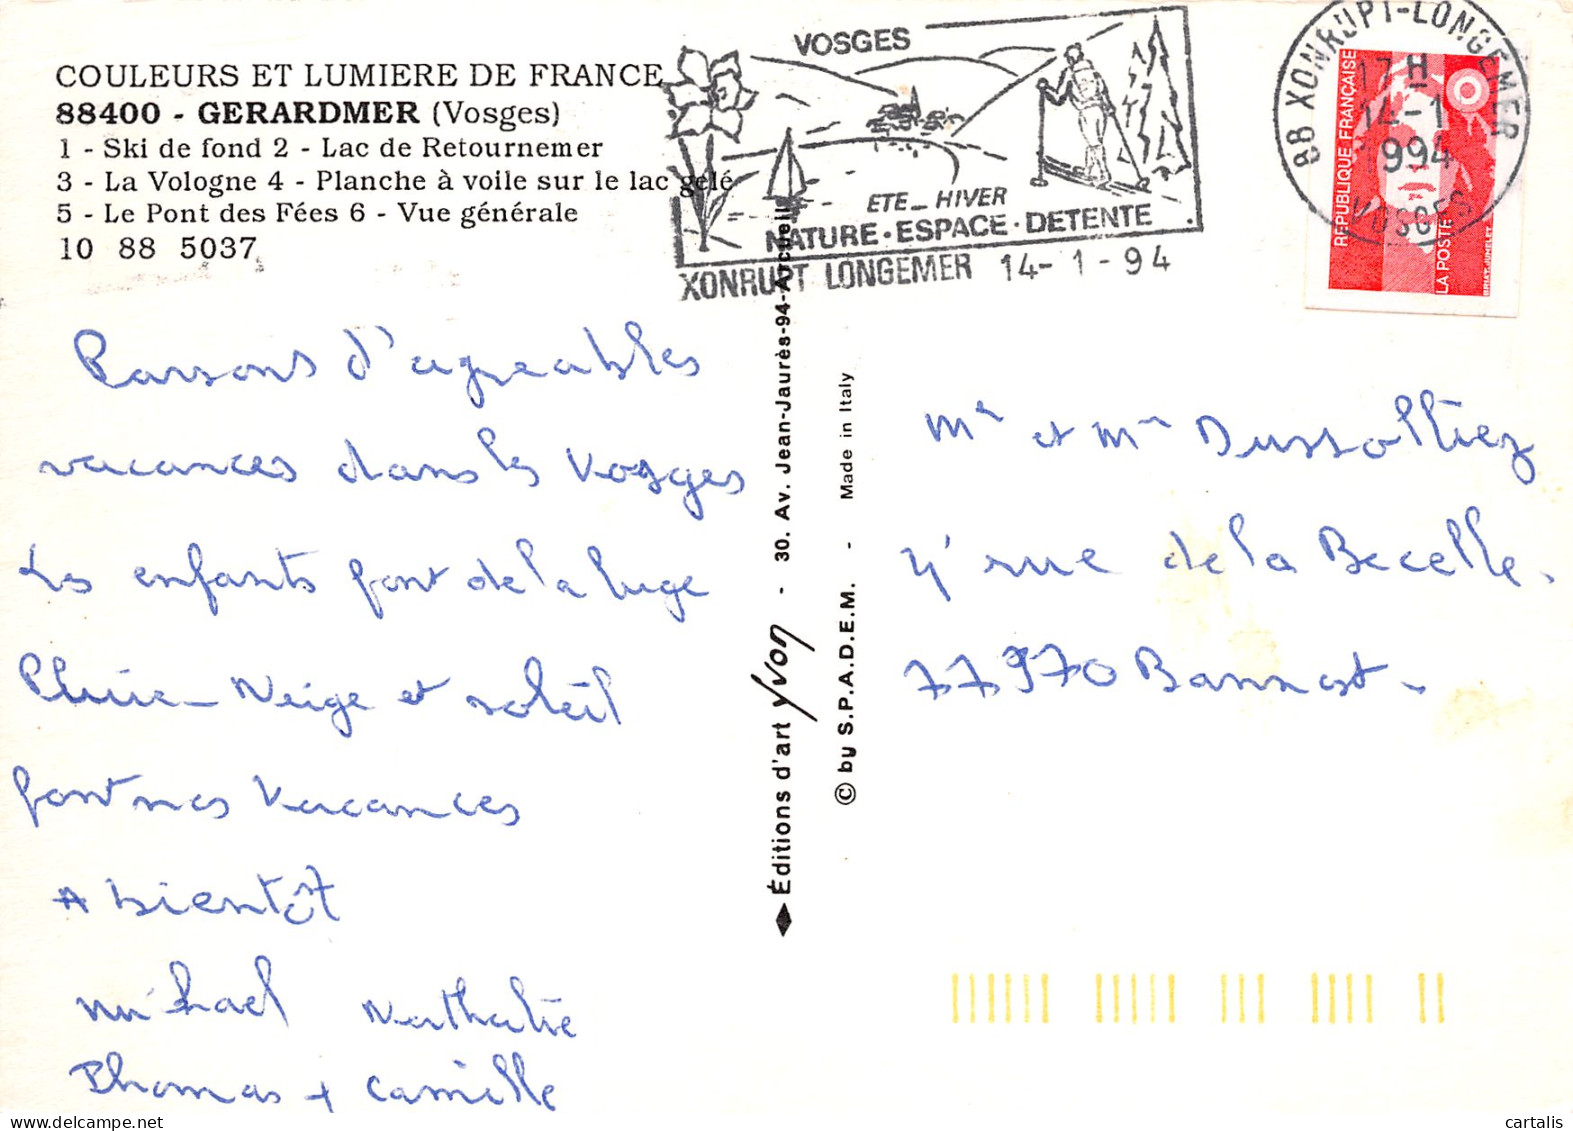 COULEURS ET LUMIERE DE FRANCE
88400 - GERARDMER (Vosges)
1 - Ski de fond 2 - Lac de Retournemer
3 - La Vologne 4 - Planche à voile sur le lac gelé
5 - Le Pont des Fées 6 - Vue générale
10 88 5037
VOSGES
ETE - HIVER
NATURE · ESPACE · DETENTE
XONRUPT LONGEMER 14-1-94
88 XONRUPT-LONGEMER
17 H
14-1
1994
VOSGES
REPUBLIQUE FRANÇAISE
LA POSTE
BRIAT-JUMELET
Passons d'agreables
vacances dans les Vosges
Les enfants font de la luge
Pluie - Neige et soleil
font nos vacances
A bientôt
Mikhael Nathalie
Thomas + Camille
Éditions d'art Yvon - 30. Av. Jean-Jaurès-94-Arcueil
© by S.P.A.D.E.M. - Made in Italy
Mr et Mme Dussolliez
4' rue de la Becelle.
77970 Bannost -
cartalis